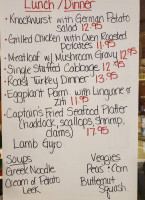 Lunch/Dinner
•Knockwurst with German Potato
Salad 12.95
•Grilled Chicken with Oven Roasted
Potatoes 11.95
•Meatloaf w/ Mushroom Gravy 12.95
•Single Stuffed Cabbage 12.95
•Roast Turkey Dinner 13.95
•Eggplant Parm with Linguine or
Ziti 11.95
•Captain's Fried Seafood Platter
(haddock, scallops, shrimp,
clams) 17.95
Lamb Gyro
Soups
Veggies
Greek Noodle
Peas & Corn
Cream of Potato
Butternut
Leek
Squash